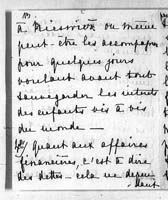 à                ou même
peut-être les accompagner
pour quelques jours
voulant avant tout
sauvegarder les intérêts
des enfants vis à vis
du monde —
Quant aux affaires
financières, c'est à dire
des dettes — cela me